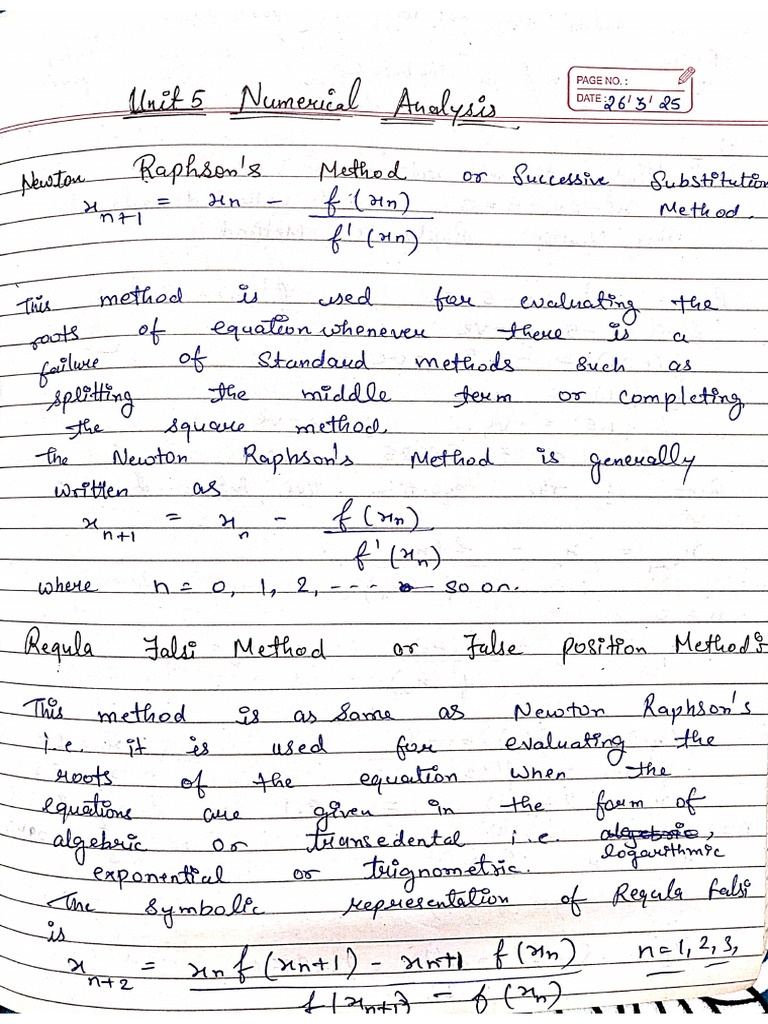 PAGE NO. :
DATE : 26' 3' 25
Unit 5 Numerical Analysis
Newton Raphson's Method or Successive Substitution
Method.
x_{n+1} = xn - f(xn) / f'(xn)
This method is used for evaluating the
roots of equation whenever there is a
failure of Standard methods such as
splitting the middle term or completing
the square method.
The Newton Raphson's Method is generally
written as
x_{n+1} = x_n - f(xn) / f'(x_n)
where n = 0, 1, 2, ---- so on.
Regula Falsi Method or False position Method's
This method is as same as Newton Raphson's
i.e. it is used for evaluating the
roots of the equation when the
equations are given in the form of
algebric or transedental i.e. algebric,
logarithmic
exponential or trignometric.
The symbolic representation of Regula falsi
is
x_{n+2} = xn f(xn+1) - xn+1 f(xn) / f(x_{n+1}) - f(x_n) n = 1, 2, 3,